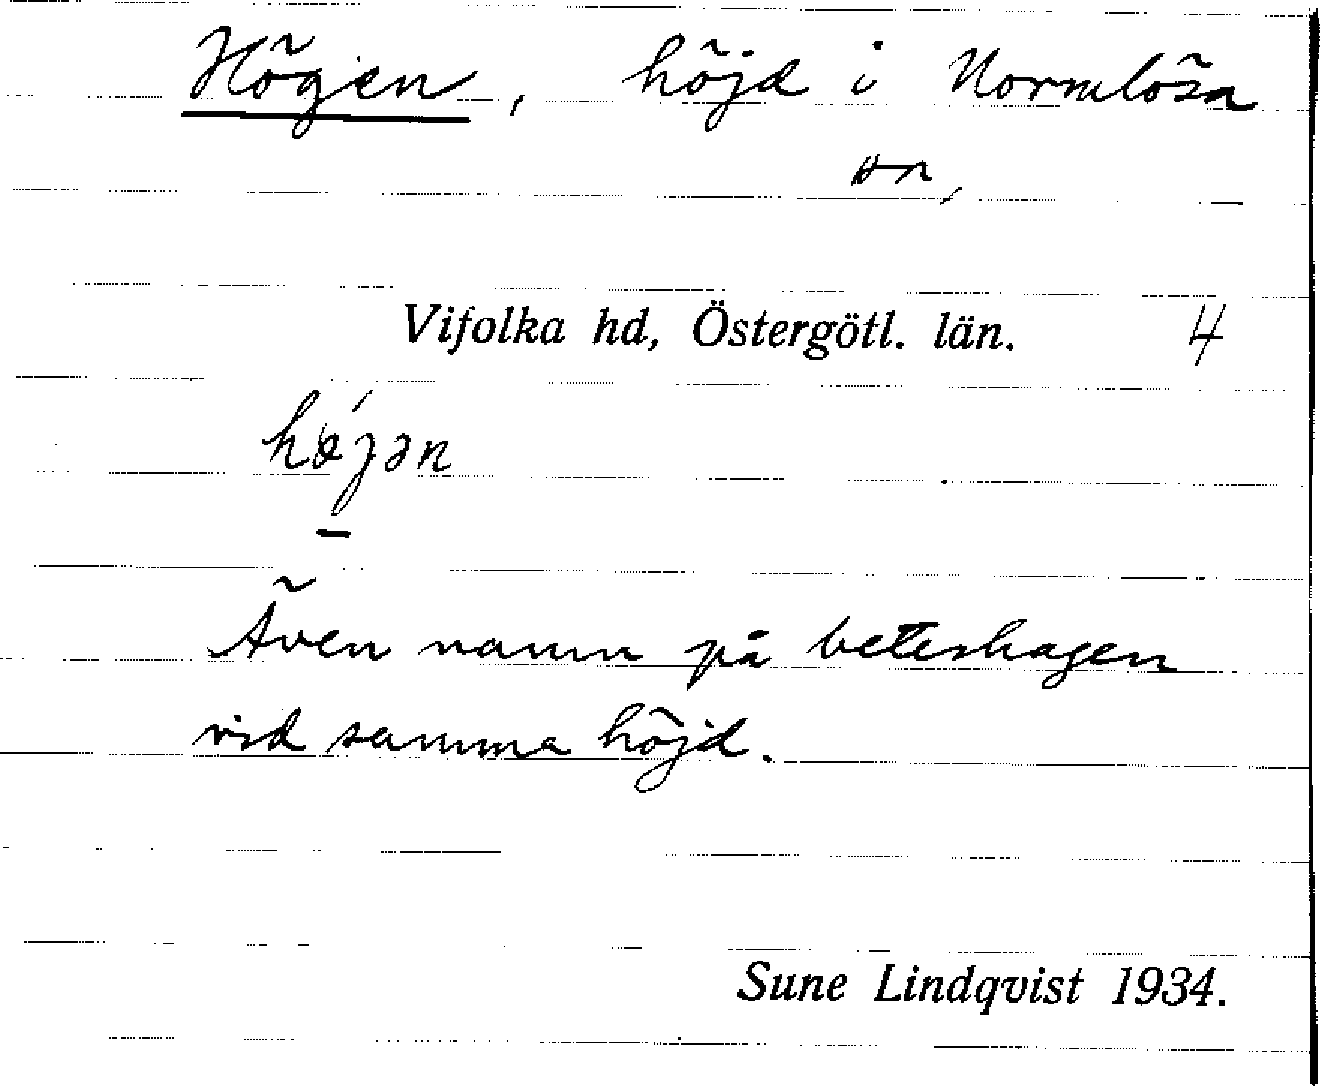 Högen, höjd i Normlösa
sn,
Vifolka hd, Östergötl. län. 4
Även namn på beteshagen
vid samma höjd.
Sune Lindqvist 1934.